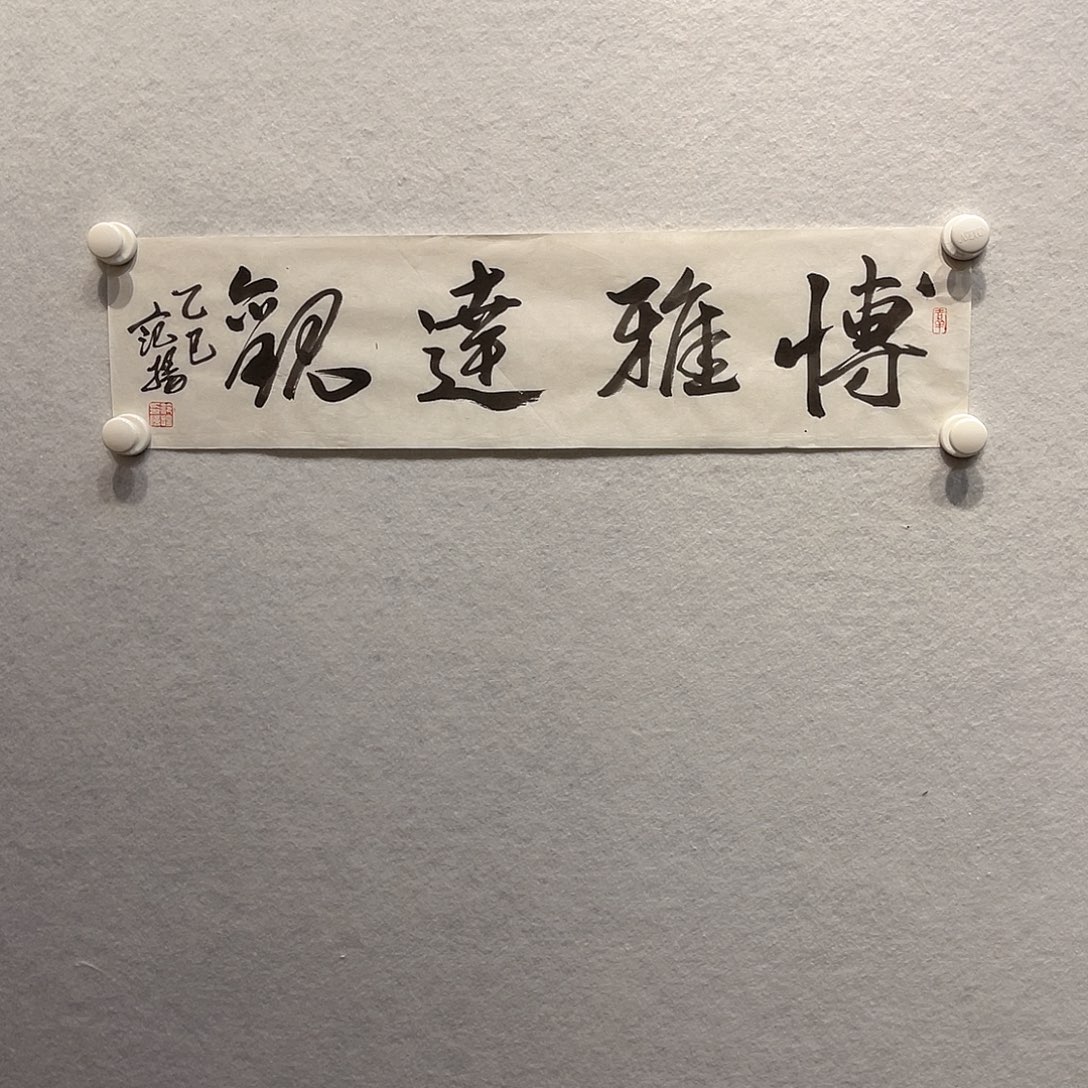 博雅達觀
乙巳
范揚